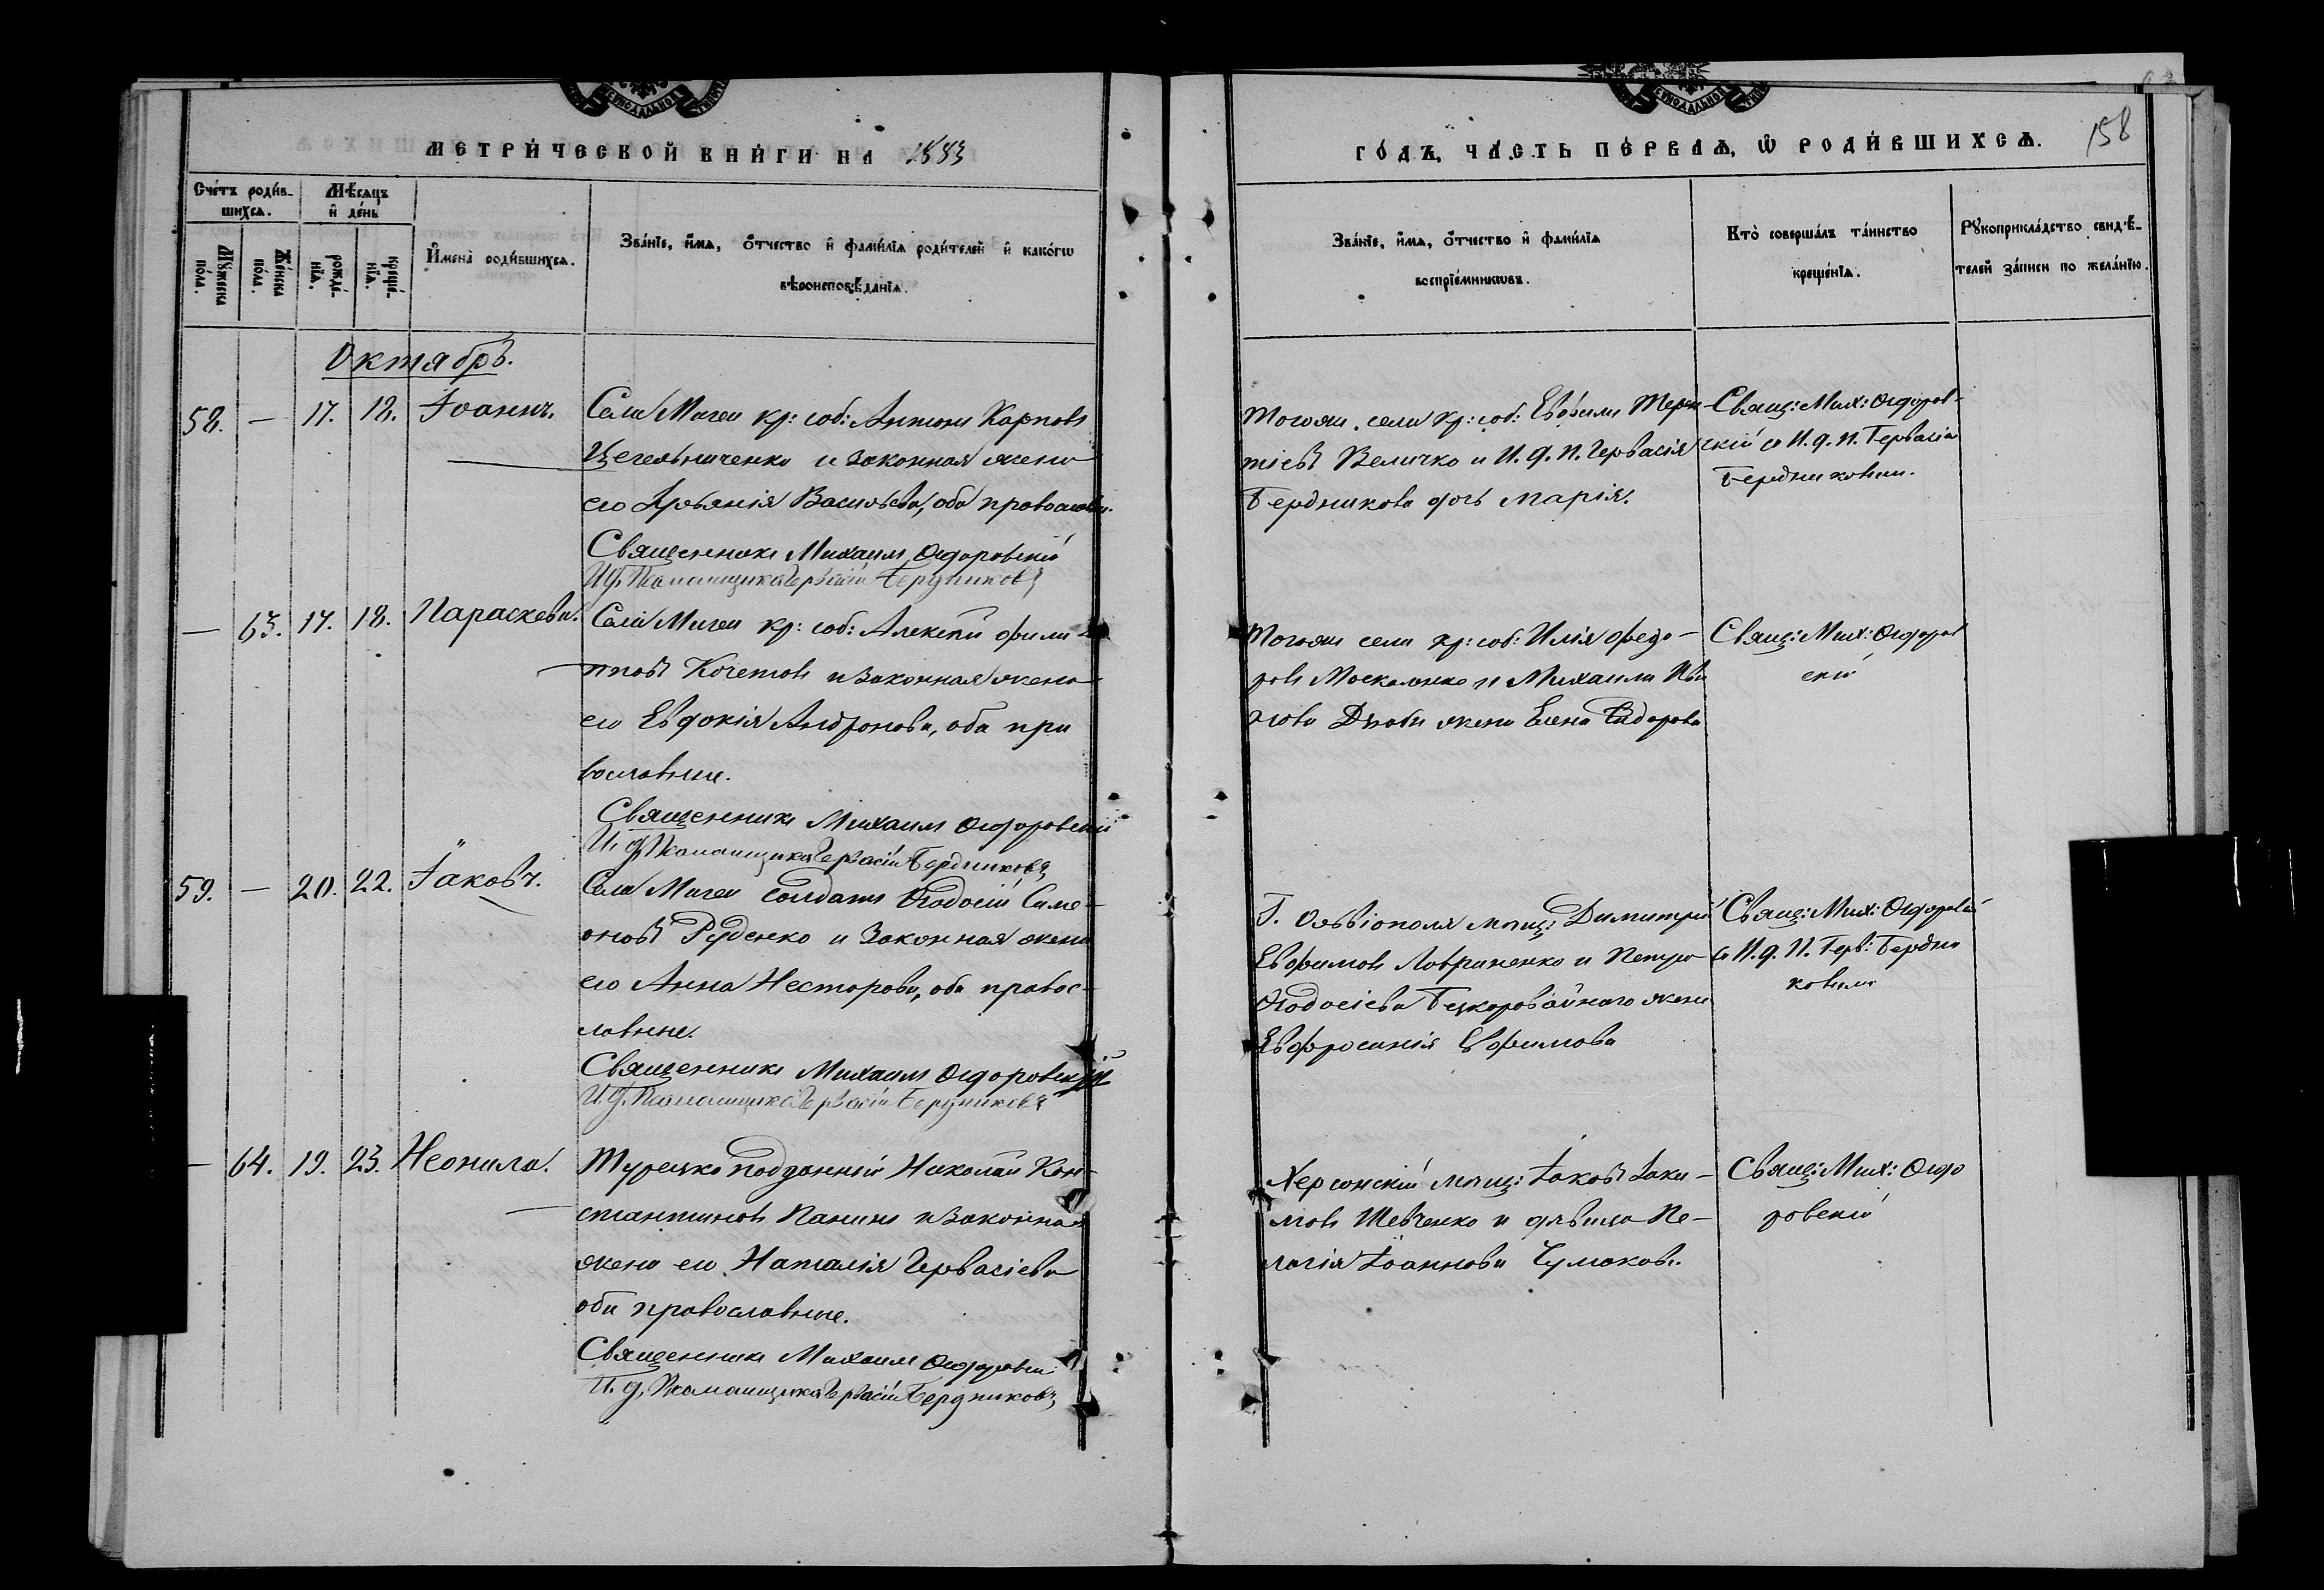 МЕТРИ́ЧЕСКОЙ КНИ́ГИ НА 1883
ГО́ДЪ, ЧА́СТЬ ПЕ́РВАѦ, Ѡ РОДИ́ВШИХСѦ.
158
Сче́тъ роди́в-
шихсѧ.
Мѣ́сѧцъ
и҆ де́нь
Мꙋ́жеска
по́ла.
Же́нска
по́ла.
рожде́-
нїѧ.
креще́-
нїѧ.
И҆мена̀ роди́вшихсѧ.
Зва́нїе, и҆́мѧ, ѻ҆́тчество и҆ фами́лїѧ роди́телей и҆ како́гѡ
вѣроисповѣ́данїѧ.
Зва́нїе, и҆́мѧ, ѻ҆́тчество и҆ фами́лїѧ
воспрїе́мникѡвъ.
Кто̀ соверша́лъ та́инство
креще́нїѧ.
Рꙋкоприкла́дство свидѣ́-
телей за́писи по жела́нїю.
Октябрь.
58. — 17. 18. Іоаннъ.
Села Мигеи кр: соб: Антонъ Карповъ
Цегельниченко и законная жена
его Ульянія Васильева, оба православн.
Священникъ Михаилъ Ѳедоровскій
И. д. Псаломщика Гервасій Бердниковъ
Тогожъ села кр: соб: Евфимъ
тіевъ Величко и И. д. П. Гервасія
Бердникова дочь Марія.
Свящ: Мих: Ѳедоров-
скій съ И. д. П. Гервасіемъ
Бердниковымъ.
— 63. 17. 18. Параскева.
Села Мигеи кр: соб: Алексѣй Филип-
повъ Кочетовъ и законная жена
его Евдокія Андронова, оба пра
вославные.
Священникъ Михаилъ Ѳедоровскій
И. д. Псаломщика Гервасій Бердниковъ
Тогожъ села кр: соб: Илія Федо-
ровъ Москаленко и Михаила
жена Елена Сидорова
Свящ: Мих: Ѳедоров
скій
59. — 20. 22. Іаковъ.
Села Мигеи солдатъ Ѳеодосій Симе-
оновъ Руденко и законная жена
его Анна Несторова, оба правос-
лавные.
Священникъ Михаилъ Ѳедоровскій
И. д. Псаломщика Гервасій Бердниковъ
Г. Ольвіополя мѣщ: Димитрій
Евфимовъ Лавриненко и Петра
Ѳеодосіева Безкоровайнаго жена
Евфросинія Евфимова
Свящ: Мих: Ѳедоровскій
съ И. д. П. Герв: Бердни
ковымъ
— 64. 19. 23. Неонила.
Турецко подданный Николай Кон-
стантиновъ Панинъ и законная
жена его Наталія Гервасіева
оба православные.
Священникъ Михаилъ Ѳедоровскій
И. д. Псаломщика Гервасій Бердниковъ
Херсонскій мѣщ: Іаковъ Іаки-
мовъ Шевченко и дѣвица Пе-
лагія Іоаннова Чумакова.
Свящ: Мих: Ѳедо
ровскій